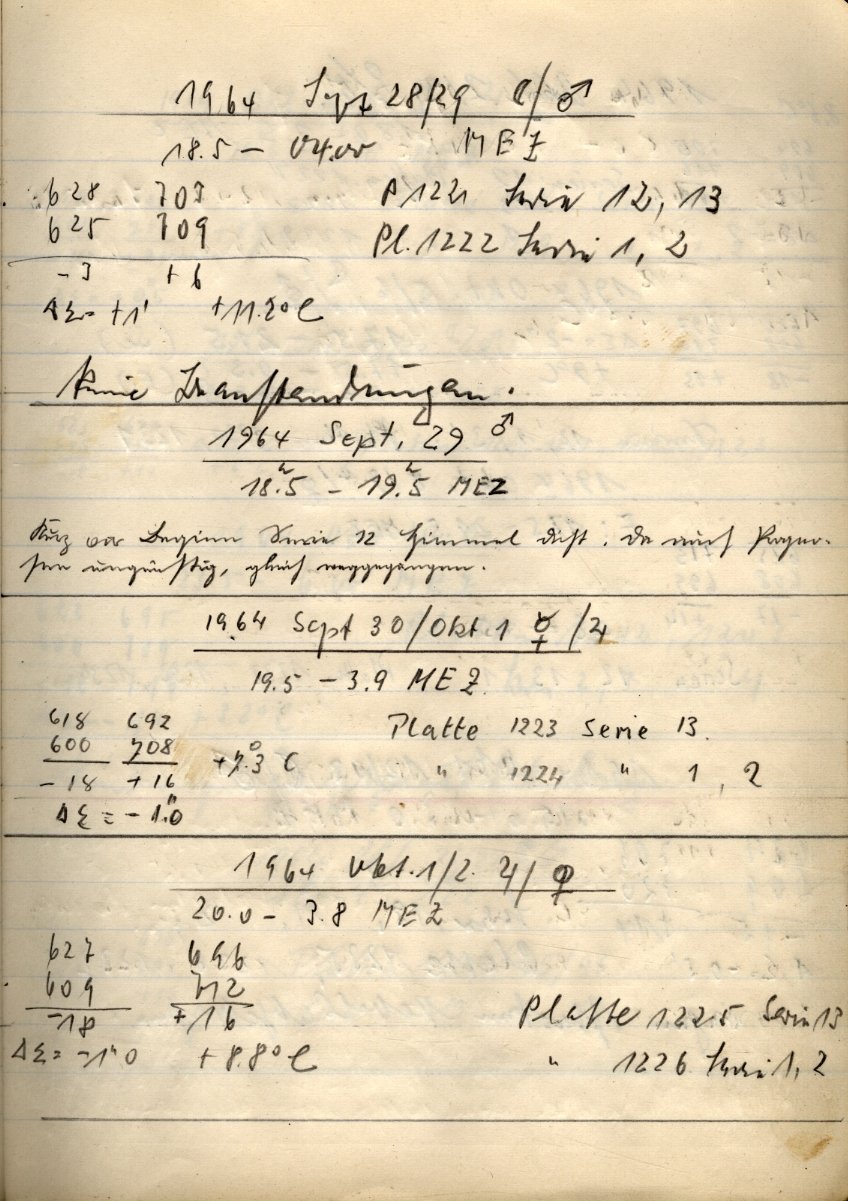 1964 Sept 28/29 ☾/♂
18.5 – 04.00 MEZ
628 703 P. 1221 Serie 12, 13
625 709 Pl. 1222 Serie 1, 2
-3 +6
ΔΣ = +1" +11.2°C
Keine Beanstandungen.
1964 Sept. 29 ♂
18.5 – 19.5 MEZ
Kurz vor Beginn Serie 12 Himmel dicht. Da auch Progno-
sen ungünstig, gleich weggegangen.
1964 Sept 30/Okt 1 ☿/♃
19.5 – 3.9 MEZ.
618 692 Platte 1223 Serie 13.
600 708 +7.3°C " 1224 " 1, 2
-18 +16
ΔΣ = -1."0
1964 Okt. 1/2. ♃/♀
20.0 – 3.8 MEZ
627 696
609 712 Platte 1225 Serie 13
-18 +16
ΔΣ = -1."0 +8.8°C " 1226 Serie 1, 2